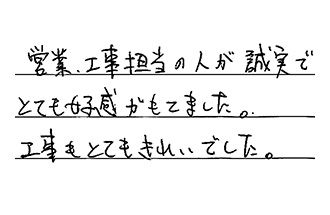 営業、工事担当の人が誠実で
とても好感がもてました。
工事もとてもきれいでした。